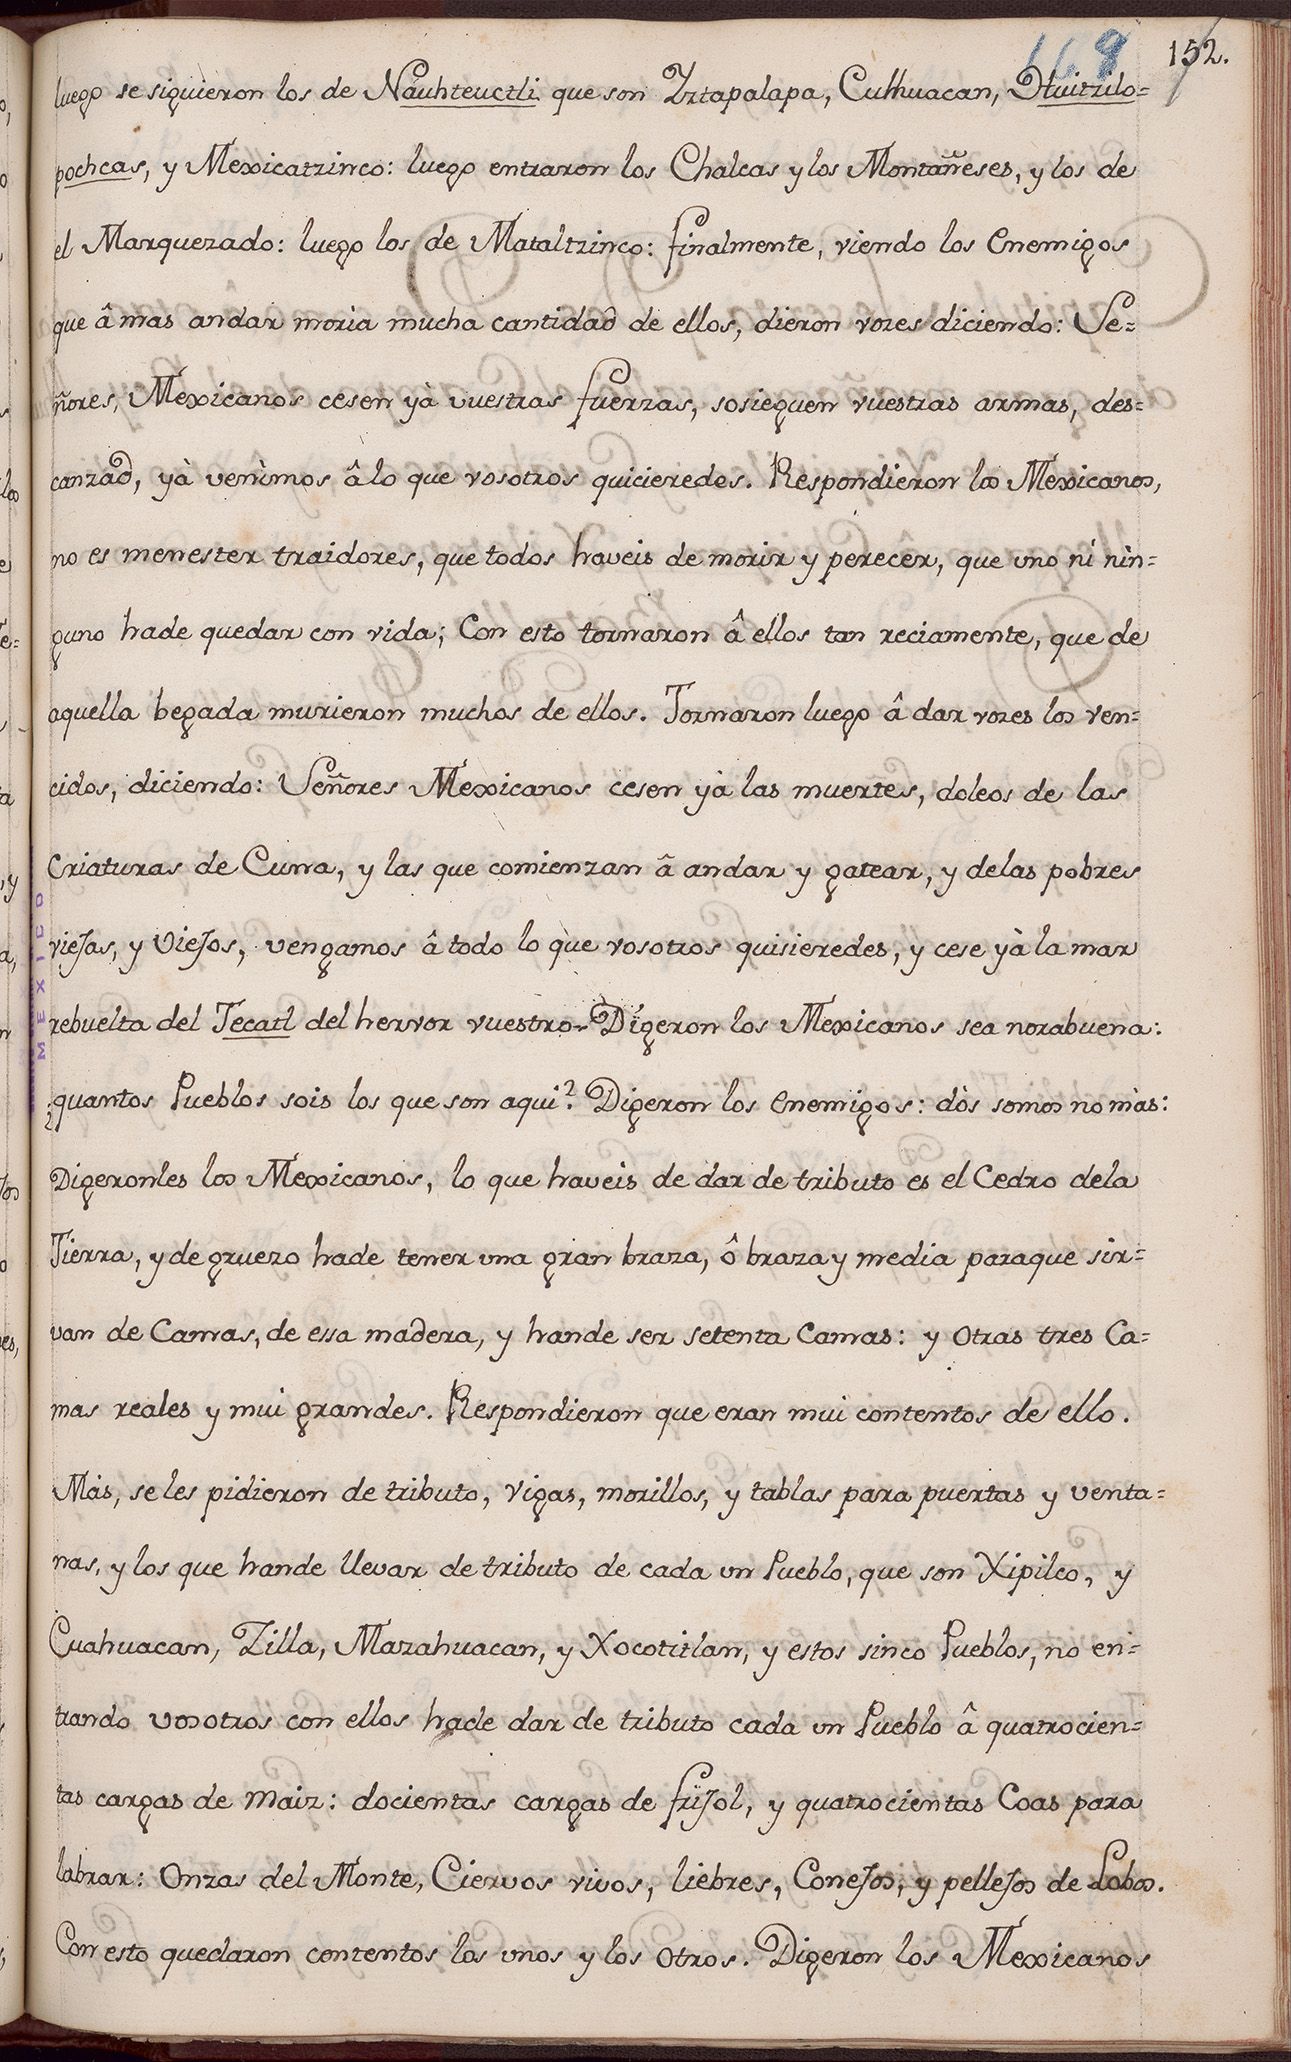 169 152.
luego se siguieron los de Nauhteuctli que son Yztapalapa, Culhuacan, Huitzilo=
pochcas, y Mexicatzinco: luego entraron los Chalcas y los Montañeses, y los de
el Marquezado: luego los de Mataltzinco: finalmente, viendo los Enemigos
que â mas andar morìa mucha cantidad de ellos, dieron vozes diciendo: Se=
ñores, Mexicanos cesen yà vuestras fuerzas, sosieguen vuestras armas, des=
canzad, yà venimos â lo que vosotros quicieredes. Respondieron los Mexicanos,
no es menester traidores, que todos haveis de morir y perecêr, que uno ni nin=
guno hade quedar con vida; Con esto tornaron â ellos tan reciamente, que de
aquella begada murieron muchos de ellos. Tornaron luego â dar vozes los ven=
cidos, diciendo: Señores Mexicanos cesen yà las muertes, doleos de las
Criaturas de Cuna, y las que comienzan â andar y gatear, y delas pobres
viejas, y viejos, vengamos â todo lo que vosotros quisieredes, y cese yà la mar
rebuelta del Tecatl del hervor vuestro.. Digeron los Mexicanos sea norabuena:
¿quantos Pueblos sois los que son aqui? Digeron los enemigos: dòs somos no màs:
Digeronles los Mexicanos, lo que haveis de dar de tributo es el Cedro dela
Tierra, y de gruezo hade tener una gran braza, ô braza y media paraque sir=
van de Camas, de essa madera, y hande ser setenta Camas: y otras tres Ca=
mas reales y mui grandes. Respondieron que eran mui contentos de ello.
Màs, se les pidieron de tributo, vigas, morillos, y tablas para puertas y venta=
nas, y los que hande llevar de tributo de cada un Pueblo, que son Xipilco, y
Cuahuacan, Zilla, Mazahuacan, y Xocotitlan, y estos sinco Pueblos, no en=
trando vosotros con ellos hade dar de tributo cada un Pueblo â quatrocien=
tas cargas de maiz: docientas cargas de frijol, y quatrocientas Coas para
labrar: Onzas del Monte, Ciervos vivos, liebres, Conejos, y pellejos de Lobos.
Con esto quedaron contentos los unos y los otros. Digeron los Mexicanos
MEXICO